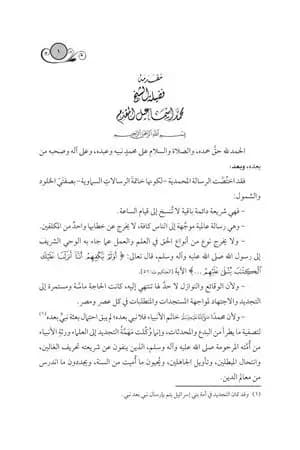 ١
مقدمة
فضيلة الشيخ
محمد إسماعيل المقدم
بسم الله الرحمن الرحيم
الحمد لله حقَّ حمده، والصلاة والسلام على محمدٍ نبيه وعبده، وعلى آله وصحبه من
بعده، وبعد:
فقد اختصَّت الرسالة المحمدية -لكونها خاتمة الرسالات السماوية- بصفتَي الخلود
والشمول:
- فهي شريعة دائمة باقية لا تُنسخ إلى قيام الساعة.
- وهي رسالة عالمية موجَّهة إلى الناس كافة، لا يخرج عن خطابها واحدٌ من المكلفين.
- ولا يخرج نوع من أنواع الحق في العلم والعمل عما جاء به الوحي الشريف
إلى رسول الله صلى الله عليه وآله وسلم، قال تعالى: ﴿ أَوَلَمْ يَكْفِهِمْ أَنَّا أَنزَلْنَا عَلَيْكَ
الْكِتَابَ يُتْلَى عَلَيْهِمْ ... ﴾ الآية [العنكبوت: ٥١].
- ولأن الوقائع والنوازل لا حدَّ لها تنتهي إليه، كانت الحاجة ماسَّة ومستمرة إلى
التجديد والاجتهاد لمواجهة المستجدات والمتطلبات في كل عصر ومصر.
- ولأن محمدًا ﷺ خاتم الأنبياء فلا نبي بعده؛ لم يبق احتمال بعثة نبيٍّ بعده(١)
لتصفية ما يطرأ من البدع والمحدثات، وإنما وُكلت مَهمَّة التجديد إلى العلماء ورثةِ الأنبياء
من أمَّته المرحومة صلى الله عليه وآله وسلم، الذين ينفون عن شريعته تحريف الغالين،
وانتحال المبطلين، وتأويل الجاهلين، ويُحيون ما أُميت من السنة، ويجددون ما اندرس
من معالم الدين.
(١) وقد كان التجديد في أمة بني إسرائيل يتم بإرسال نبي بعد نبي.